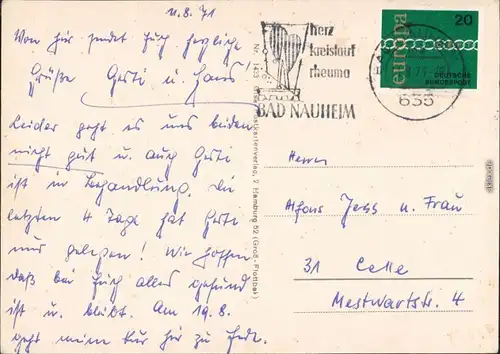 11.8.71
Von hier sendet Euch herzliche
Grüße Gerti u. Hans!
Leider geht es uns beiden
nicht gut u. auch Gerti
ist in Behandlung. Die
letzten 4 Tage hat Gerti
nur gelegen! Wir hoffen
daß bei Euch alles gesund
ist u. bleibt. Am 19.8.
geht meine Kur hier zu Ende.
herz
kreislauf
rheuma
BAD NAUHEIM
635
europa
20
DEUTSCHE
BUNDESPOST
Hamburg 52 (Groß-Flottbek)
Herrn
Alfons Jerss u. Frau
31 Celle
Mestwartstr. 4